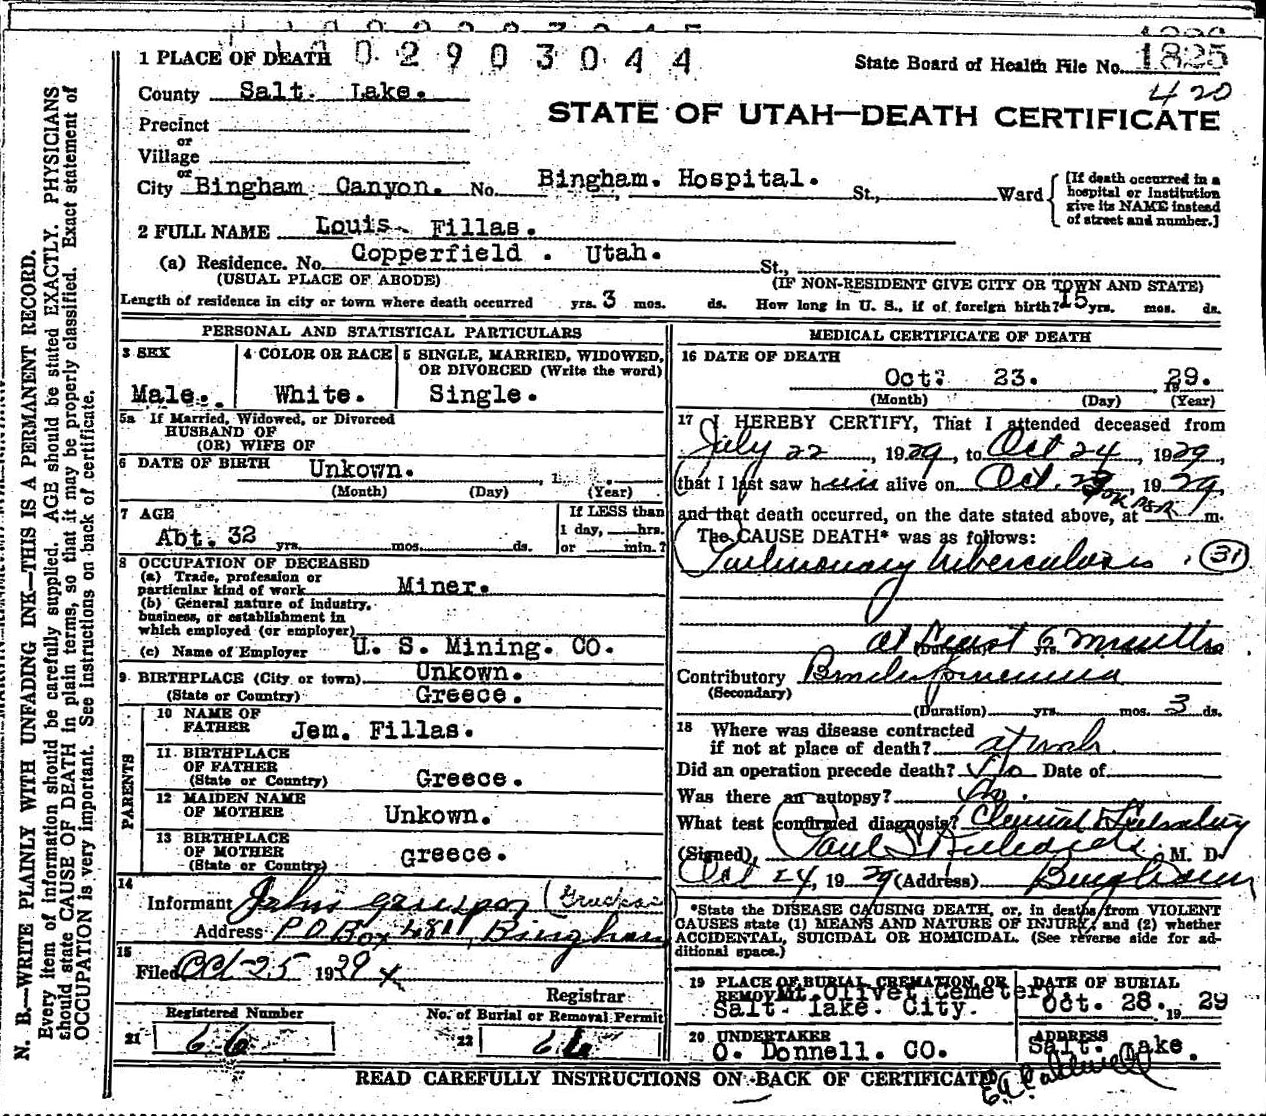 02903044
State Board of Health File No. 1825
420
1 PLACE OF DEATH
County Salt. Lake.
STATE OF UTAH—DEATH CERTIFICATE
Precinct
or
Village
or
City Bingham Canyon. No. Bingham. Hospital. St., Ward
[If death occurred in a hospital or institution give its NAME instead of street and number.]
2 FULL NAME Louis Fillas.
(a) Residence. No. Copperfield . Utah. St.,
(USUAL PLACE OF ABODE) (IF NON-RESIDENT GIVE CITY OR TOWN AND STATE)
Length of residence in city or town where death occurred yrs. 3 mos. ds. How long in U. S., if of foreign birth? 15 yrs. mos. ds.
PERSONAL AND STATISTICAL PARTICULARS
3 SEX
Male.
4 COLOR OR RACE
White.
5 SINGLE, MARRIED, WIDOWED,
OR DIVORCED (Write the word)
Single.
5a If Married, Widowed, or Divorced
HUSBAND OF
(OR) WIFE OF
6 DATE OF BIRTH Unkown. , 1
(Month) (Day) (Year)
7 AGE
Abt. 32 yrs. mos. ds.
If LESS than
1 day, hrs.
or min.?
8 OCCUPATION OF DECEASED
(a) Trade, profession or
particular kind of work Miner.
(b) General nature of industry,
business, or establishment in
which employed (or employer)
(c) Name of Employer U. S. Mining. CO.
9. BIRTHPLACE (City or town) Unkown.
(State or Country) Greece.
PARENTS
10 NAME OF
FATHER Jem. Fillas.
11 BIRTHPLACE
OF FATHER
(State or Country) Greece.
12 MAIDEN NAME
OF MOTHER Unkown.
13 BIRTHPLACE
OF MOTHER
(State or Country) Greece.
14
Informant
Address P.O. Box Bingham
15
Filed Oct 25 1929
Registrar
Registered Number
21 66
No. of Burial or Removal Permit
22 66
MEDICAL CERTIFICATE OF DEATH
16 DATE OF DEATH
Oct. 23. 1929.
(Month) (Day) (Year)
17 I HEREBY CERTIFY, That I attended deceased from
July 22, 1929, to Oct 24, 1929,
that I last saw him alive on Oct. 23, 1929,
and that death occurred, on the date stated above, at m.
The CAUSE DEATH* was as follows:
Pulmonary tuberculosis . (31)
at least 6 months
(Duration) yrs.
Contributory Bronchopneumonia
(Secondary)
(Duration) yrs. mos. 3 ds.
18 Where was disease contracted
if not at place of death? at work
Did an operation precede death? No Date of
Was there an autopsy? No.
What test confirmed diagnosis? Clinical &
(Signed) Paul S Richards M. D.
Oct 24, 1929 (Address) Bingham
*State the DISEASE CAUSING DEATH, or, in deaths from VIOLENT
CAUSES state (1) MEANS AND NATURE OF INJURY, and (2) whether
ACCIDENTAL, SUICIDAL OR HOMICIDAL. (See reverse side for ad-
ditional space.)
19 PLACE OF BURIAL CREMATION, OR
REMOVAL Mt. Olivet Cemetery
Salt. lake. City.
DATE OF BURIAL
Oct. 28. 1929
20 UNDERTAKER
O. Donnell. CO.
ADDRESS
Salt. Lake.
READ CAREFULLY INSTRUCTIONS ON BACK OF CERTIFICATE
N. B.—WRITE PLAINLY WITH UNFADING INK—THIS IS A PERMANENT RECORD.
Every item of information should be carefully supplied. AGE should be stated EXACTLY. PHYSICIANS
should state CAUSE OF DEATH in plain terms, so that it may be properly classified. Exact statement of
OCCUPATION is very important. See instructions on back of certificate.